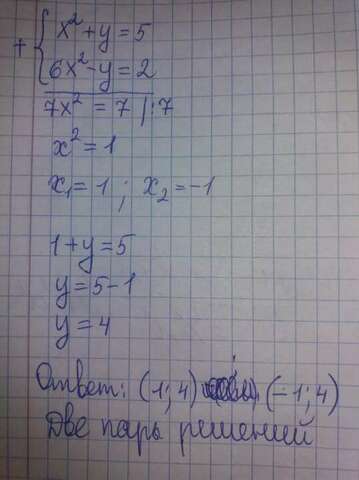 + { x² + y = 5
6x² - y = 2
7x² = 7 | : 7
x² = 1
x₁ = 1 ; x₂ = -1
1 + y = 5
y = 5 - 1
y = 4
Ответ: (1; 4) (-1; 4)
Две пары решений